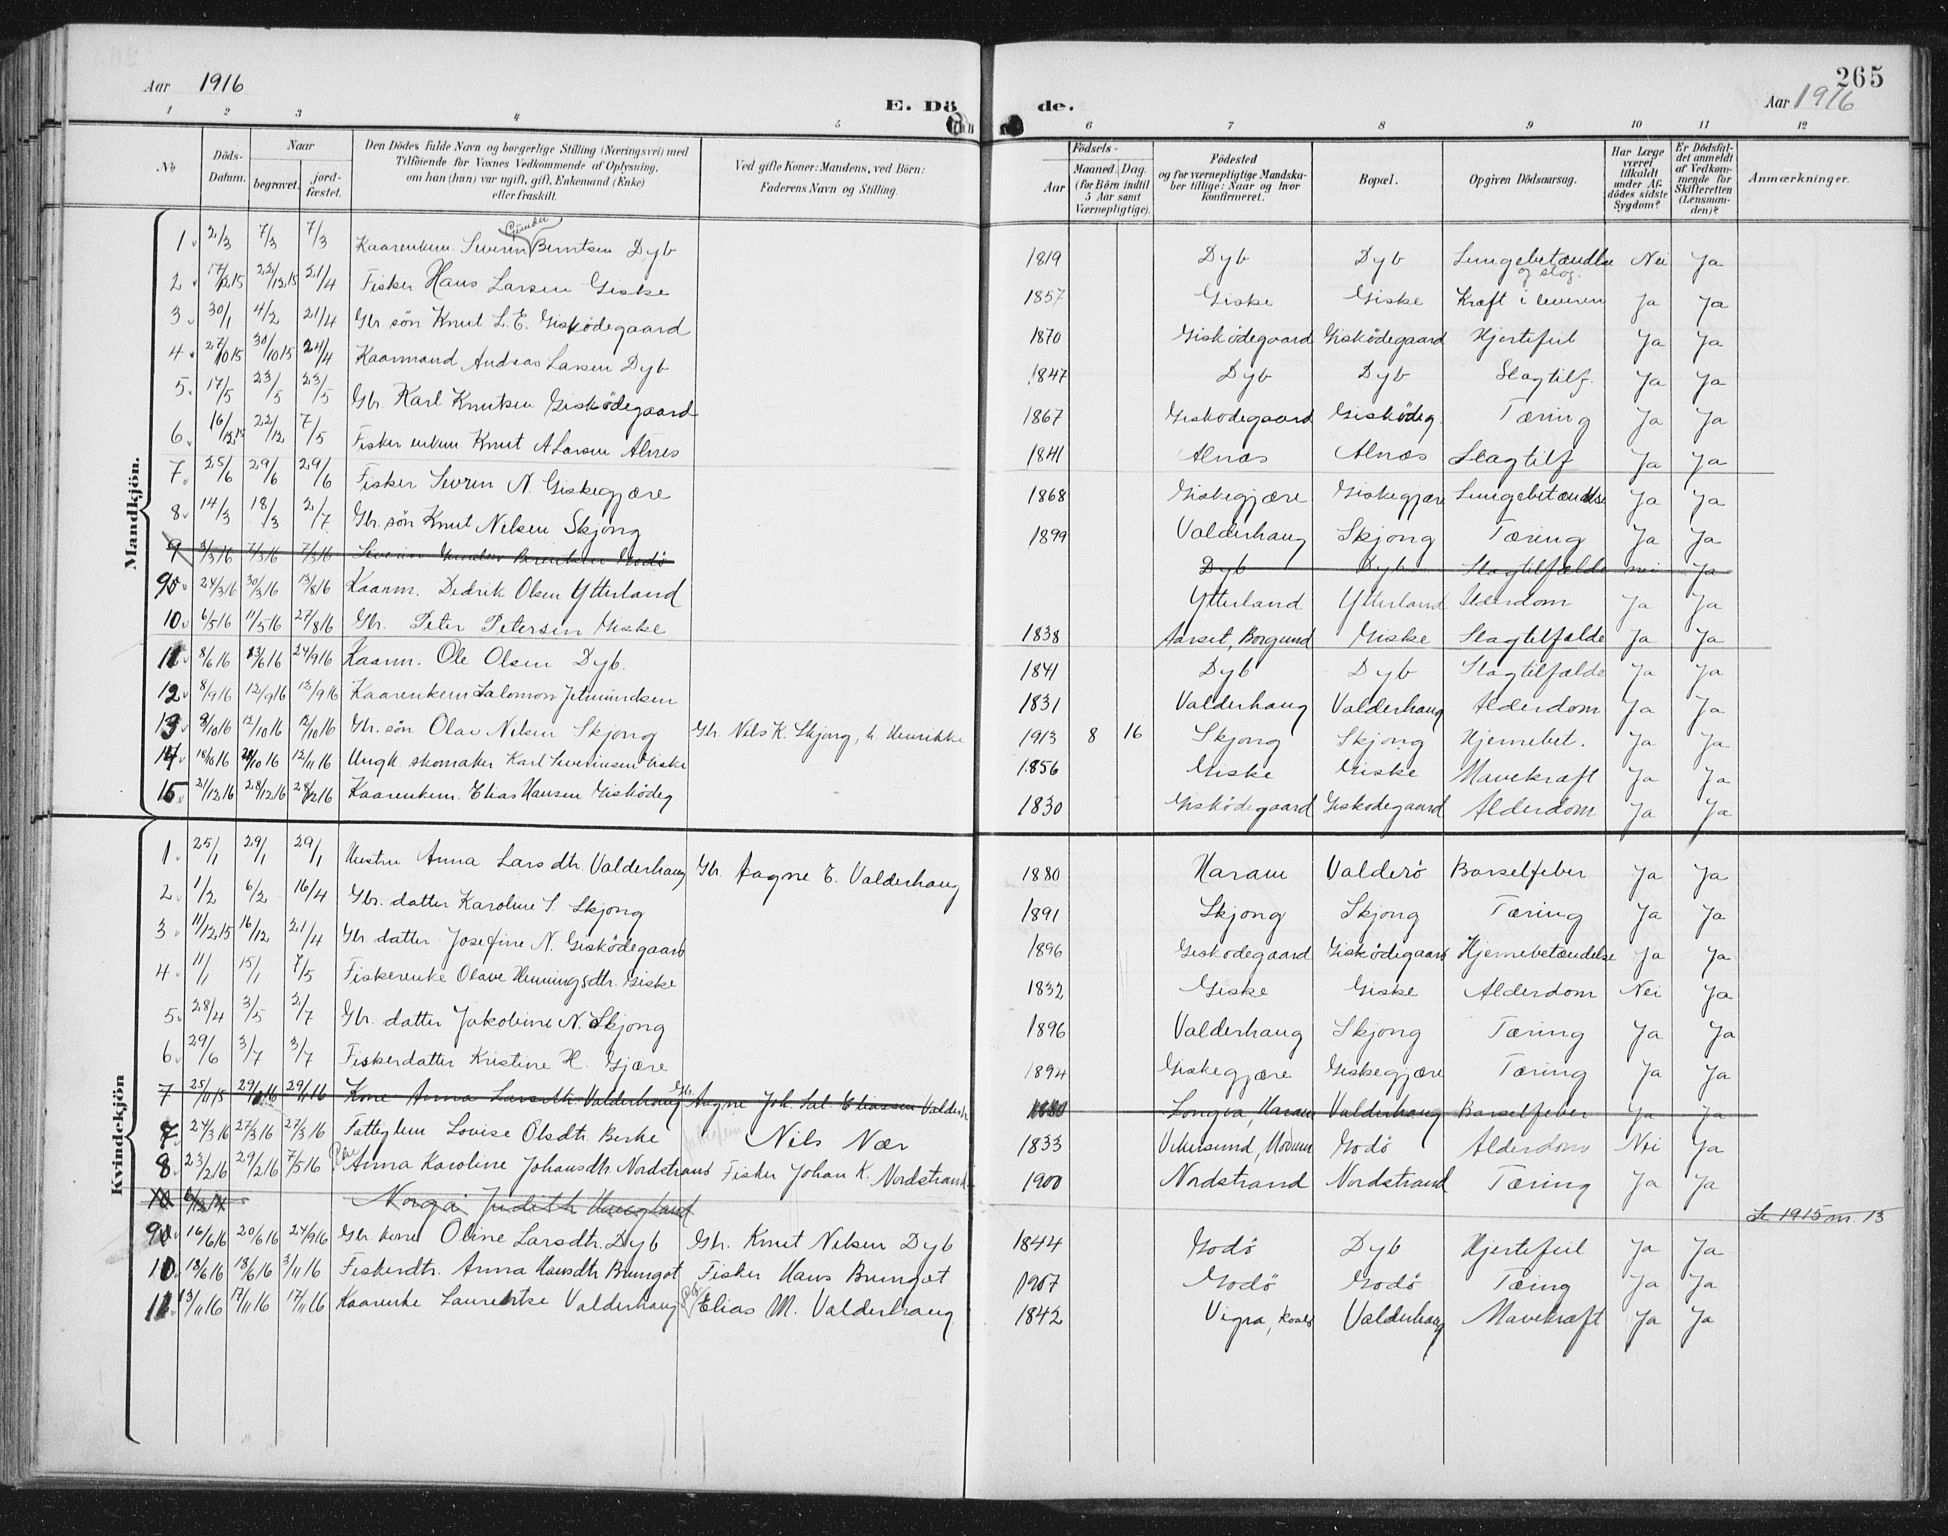 265
Aar 1916
E. Döde.
Aar 1916
1 2 3 4 5 6 7 8 9 10 11 12
No
Döds-Datum.
Naar
begravet.
jord-fæstet.
Den Dödes fulde Navn og borgerlige Stilling (Næringsvei) med
Tilföiende for Voxnes Vedkommende af Oplysning.
om han (hun) var ugift, gift, Enkemand (Enke)
eller fraskilt.
Ved gifte Koner: Mandens, ved Börn:
Faderens Navn og Stilling.
Födsels-
Aar
Maaned. Dag.
(for Börn indtil
5 Aar samt
Værnepligtige).
Födested
og for værnepligtige Mandska-
ber tillige: Naar og hvor
konfirmeret.
Bopæl.
Opgiven Dödsaarsag.
Har Læge
været
tilkaldt
under Af-
dödes sidste
Sygdom?
Er Dödsfal-
det anmeldt
af Vedkom-
mende for
Skifteretten
(Lensman-
den)?
Anmærkninger.
Mandkjön.
1 2/3 7/3 7/3 Kaarenkem. Severin Gunder Berntsen Dyb 1819 Dyb Dyb Lungebetændelse og slag. Nei Ja
2 17/12 15 22/12 15 21/4 Fisker Hans Larsen Giske 1857 Giske Giske Kræft i leveren Ja Ja
3 30/1 4/2 21/4 Gbr. sön Knut L. E. Gisködegaard 1870 Gisködegaard Gisködegaard Hjertefeil Ja Ja
4 27/10 15 30/10 15 24/4 Kaarmand Andreas Larsen Dyb 1847 Dyb Dyb Slagtilf. Ja Ja
5 17/5 23/5 23/5 Gbr. Karl Knutsen Gisködegaard 1867 Giskodegaard Gisködeg. Tæring Ja Ja
6 16/12 15 22/12 7/5 Fisker enkem Knut A Larsen Alnes 1841 Alnæs Alnæs Slagtilf Ja Ja
7 25/6 29/6 29/6 Fisker Sevrin N. Giskegjære 1868 Giskegjære Giskegjære Lungebetændelse Ja Ja
8 14/3 18/3 2/7 Gbr. sön Knut Nilsen Skjong 1899 Valderhaug Skjong Tæring Ja Ja
9 3/3 16 7/3 16 7/3 16 Severin Gunder Berentsen Godö Dyb Dyb Slagtilfælde nei Ja
9 24/3 16 30/3 16 13/8 16 Kaarm. Didrik Olsen Ytterland Ytterland Ytterland Alderdom Ja Ja
10 6/5 16 11/5 16 27/8 16 Gbr. Peter Petersen Giske 1838 Aarset, Borgund Giske Slagtilfælde Ja Ja
11 8/6 16 13/6 16 24/9 16 Kaarm. Ole Olsen Dyb. 1841 Dyb Dyb Slagtilfælde Ja Ja
12 8/9 16 12/9 16 13/9 16 Kaarenkem Salomon Jetmundsen 1831 Valderhaug Valderhaug Alderdom Ja Ja
13 8/10 16 12/10 16 12/10 16 Gbr. sön Olav Nilsen Skjong Gbr Nils K. Skjong, h. Henrikke 1913 8 16 Skjong Skjong Hjernebet. Ja Ja
14 18/10 16 24/10 16 12/11 16 Ungk skomaker Karl Severinsen Giske 1856 Giske Giske Mavekræft Ja Ja
15 21/12 16 28/12 16 28/12 16 Kaarenkem. Elias Hansen Gisködeg 1830 Gisködegaard Giskodegaard Alderdom Ja Ja
Kvindekjön
1 25/1 29/1 29/1 Hustru Anna Larsdtr. Valderhaug Gbr. Aagne E. Valderhaug 1880 Haram Valderö Barselfeber Ja Ja
2 1/2 6/2 16/4 Gbr. datter Karoline S. Skjong 1891 Skjong Skjong Tæring Ja Ja
3 11/12 15 16/12 21/4 Gbr datter Josefine N. Gisködegaard 1896 Giskodegaard Gisködegaard Hjernebetændelse Ja Ja
4 11/1 15/1 7/5 Fiskerenke Olave Henningsdtr. Giske 1832 Giske Giske Alderdom Nei Ja
5 28/4 3/5 2/7 Gbr. datter Jakobine N. Skjong 1896 Valderhaug Skjong Tæring Ja Ja
6 29/6 3/7 3/7 Fiskerdatter Kristine H. Gjære 1894 Giskegjære Giskegjære Tæring Ja Ja
7 25/11 15 29/1 16 29/1 16 Kone Anna Larsdtr Valderhaug Gbr. Aagne Joh. Sal. Eliassen Valderh. 1880 Longva, Haram Valderhaug Barselfeber Ja Ja
7 24/3 16 27/3 16 27/3 16 Fattiglem Lovise Olsdtr. Berke Nils Nær 1833 Vikersund, Modum Godö Alderdom Nei Ja
8 23/2 16 29/2 16 7/5 16 Pike Anna Karoline Johansdtr Nordstrand Fisker Johan K. Nordstrand 1900 Nordstrand Nordstrand Tæring Ja Ja
10 Norga Judith Haugland Se 1915 nr 13
9 16/6 16 20/6 16 24/9 16 Gbr. kone Oline Larsdtr. Dyb Gbr. Knut Nilsen Dyb 1844 Godö Dyb Hjertefeil Ja Ja
10 13/6 16 18/6 16 3/11 16 Fiskerdtr. Anna Hansdtr Brungot Fisker Hans Brungot 1907 Godö Godö Tæring Ja Ja
11 13/11 16 17/11 16 17/11 16 Kaarenke Laurentse Valderhaug Elias M. Valderhaug 1842 Vigra, Valderhaug Mavekræft Ja Ja